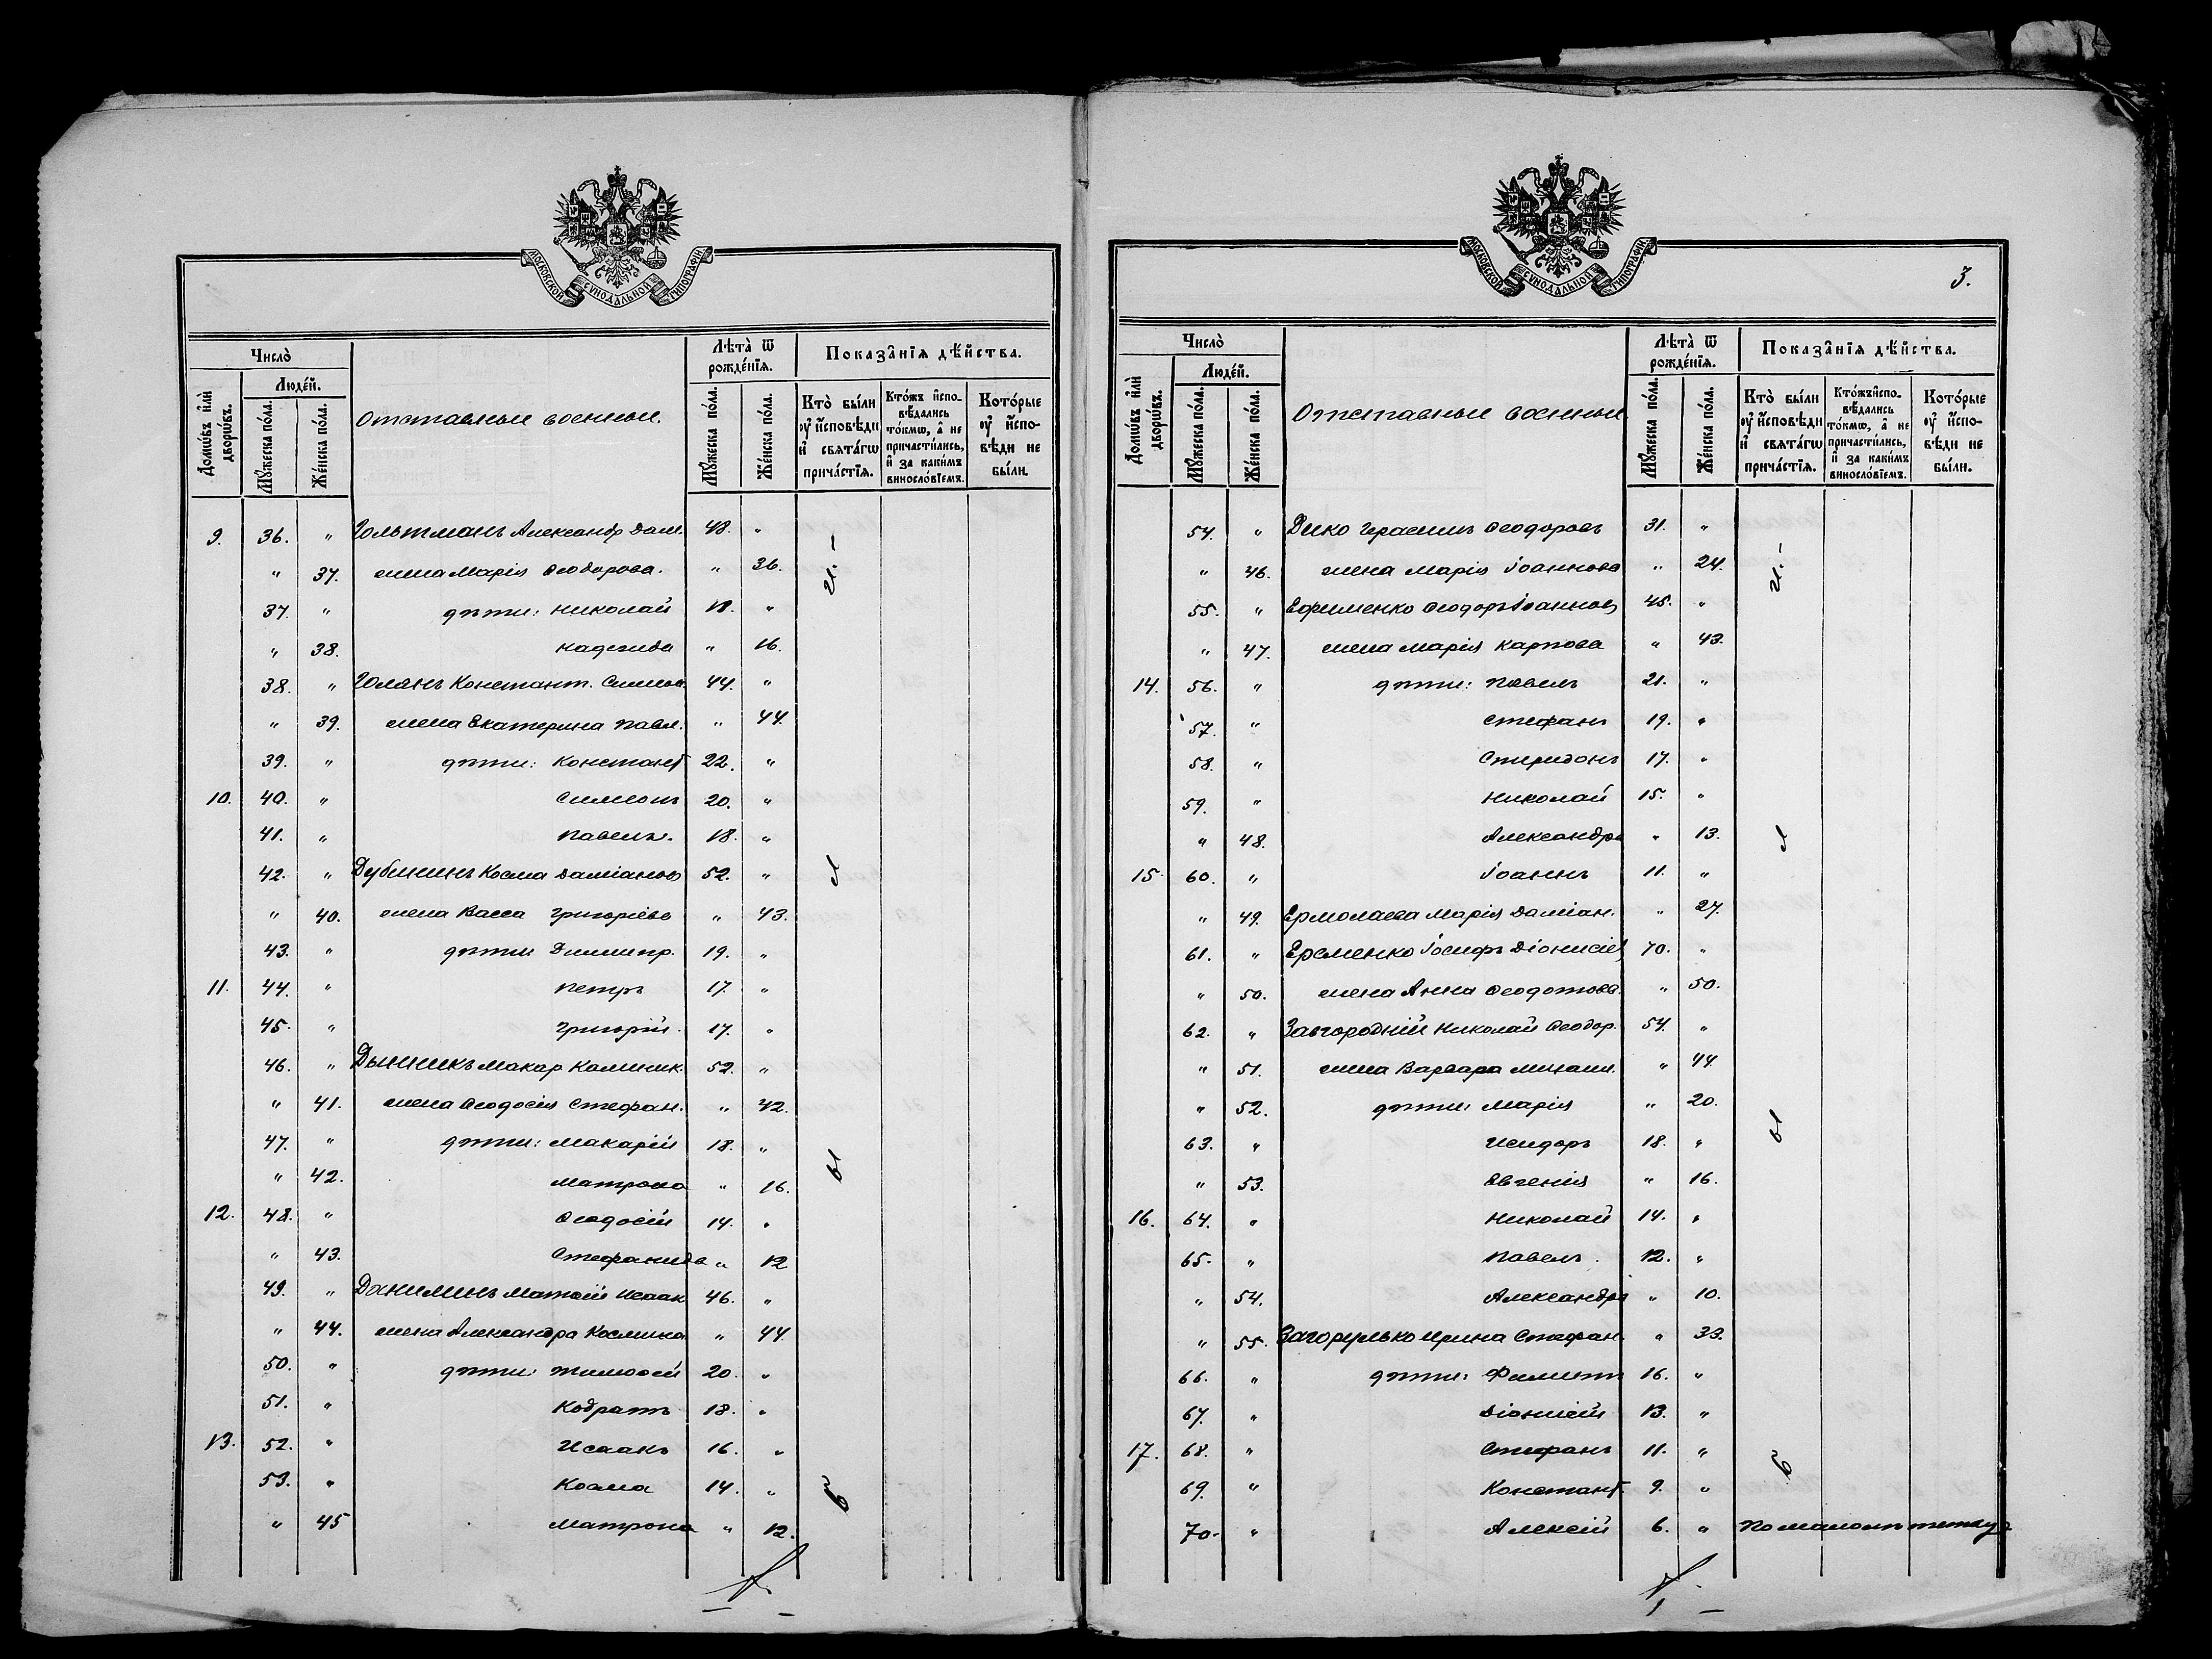 МОСКОВСКОЙ СѴНОДАЛЬНОЙ ТИПОГРАФІИ
Число̀
Домѡ́въ и҆лѝ дворѡ́въ.
Люде́й.
Мꙋ́жеска по́ла.
Же́нска по́ла.
Отставные военные.
Лѣта̀ ѿ рожде́нїѧ.
Мꙋ́жеска по́ла.
Же́нска по́ла.
Показа̑нїѧ дѣ́йства.
Кто̀ бы́ли ᲂу҆ и҆́сповѣди и҆ свѧта́гѡ прича́стїѧ.
Кто́жъ и҆спо-вѣ́дались то́кмѡ, а҆ не причасти́лись, и҆ за каки́мъ винослѡ́вїемъ.
Кото́рые ᲂу҆ и҆́спо-вѣди не бы́ли.
9. 36. " Гольтманъ Александр Дам. 48. "
" 37. жена Марія Ѳеодорова. " 36.
37. " дѣти: Николай 18. "
" 38. Надежда " 16.
38. " Голянъ Констант. Симеон. 44. "
" 39. жена Екатерина Павл. " 44.
39. " дѣти: Констант 22. "
10. 40. " Симеонъ 20. "
41. " Павелъ. 18. "
42. " Дубининъ Косма Даміановъ 52. "
" 40. жена Васса Григоріева " 43.
43. " дѣти Димитр. 19. "
11. 44. " Петръ 17. "
45. " Григорій. 17. "
46. " Дынникъ Макар Калиник. 52. "
" 41. жена Ѳеодосія Стефан. " 42.
47. " дѣти: Макарій 18. "
" 42. Матрона " 16.
12. 48. " Ѳеодосій 14. "
" 43. Стефанида " 12
49. " Данилинъ Матѳей Исаак 46. "
" 44. жена Александра Космина " 44.
50. " дѣти: Тимоѳей 20. "
51. " Кодратъ 18. "
13. 52. " Исаакъ 16. "
53. " Косма 14. "
" 45 Матрона " 12.
б ы л и. –
МОСКОВСКОЙ СѴНОДАЛЬНОЙ ТИПОГРАФІИ
3.
Число̀
Домѡ́въ и҆лѝ дворѡ́въ.
Люде́й.
Мꙋ́жеска по́ла.
Же́нска по́ла.
Отставные военные
Лѣта̀ ѿ рожде́нїѧ.
Мꙋ́жеска по́ла.
Же́нска по́ла.
Показа̑нїѧ дѣ́йства.
Кто̀ бы́ли ᲂу҆ и҆́сповѣди и҆ свѧта́гѡ прича́стїѧ.
Кто́жъ и҆спо-вѣ́дались то́кмѡ, а҆ не причасти́лись, и҆ за каки́мъ винослѡ́вїемъ.
Кото́рые ᲂу҆ и҆́спо-вѣди не бы́ли.
54. " Дико Герасимъ Ѳеодоровъ 31. "
" 46. жена Марія Іоаннова " 24.
55. " Ефименко Ѳеодоръ Іоаннов 45. "
" 47. жена Марія Карпова " 43.
14. 56. " дѣти: Павелъ 21. "
57. " Стефанъ 19. "
58. " Спиридонъ 17. "
59. " Николай 15. "
" 48. Александра " 13.
15. 60. " Іоаннъ 11. "
" 49. Ермолаева Марія Даміан. " 27.
61. " Еременко Іосифъ Діонисіев 70. "
" 50. жена Анна Ѳеодотова. " 50.
62. " Завгородній Николай Ѳеодор. 54. "
" 51. жена Варвара Михаил. " 44
" 52. дѣти: Марія " 20.
63. " Исидоръ 18. "
" 53. Евгенія " 16.
16. 64. " Николай 14. "
65. " Павелъ. 12. "
" 54. Александра " 10.
" 55. Загорулько Ирина Стефан. " 33.
66. " дѣти: Филиппъ 16. "
67. " Діонисій 13. "
17. 68. " Стефанъ 11. "
69. " Констант. 9. "
70. " Алексій 6. " по малолѣтству
б ы л и. –